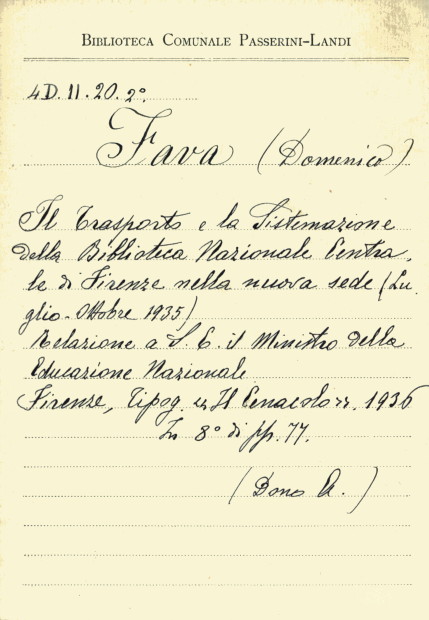 BIBLIOTECA COMUNALE PASSERINI-LANDI
4D. 11. 20. 2º.
Fava (Domenico)
Il Trasporto e la Sistemazione
della Biblioteca Nazionale Centra-
le di Firenze nella nuova sede (Lu
glio-Ottobre 1935)
Relazione a S. E. il Ministro della
Educazione Nazionale
Firenze, Tipog. «Il Cenacolo», 1936
In 8° di pp. 77.
(Dono A.)